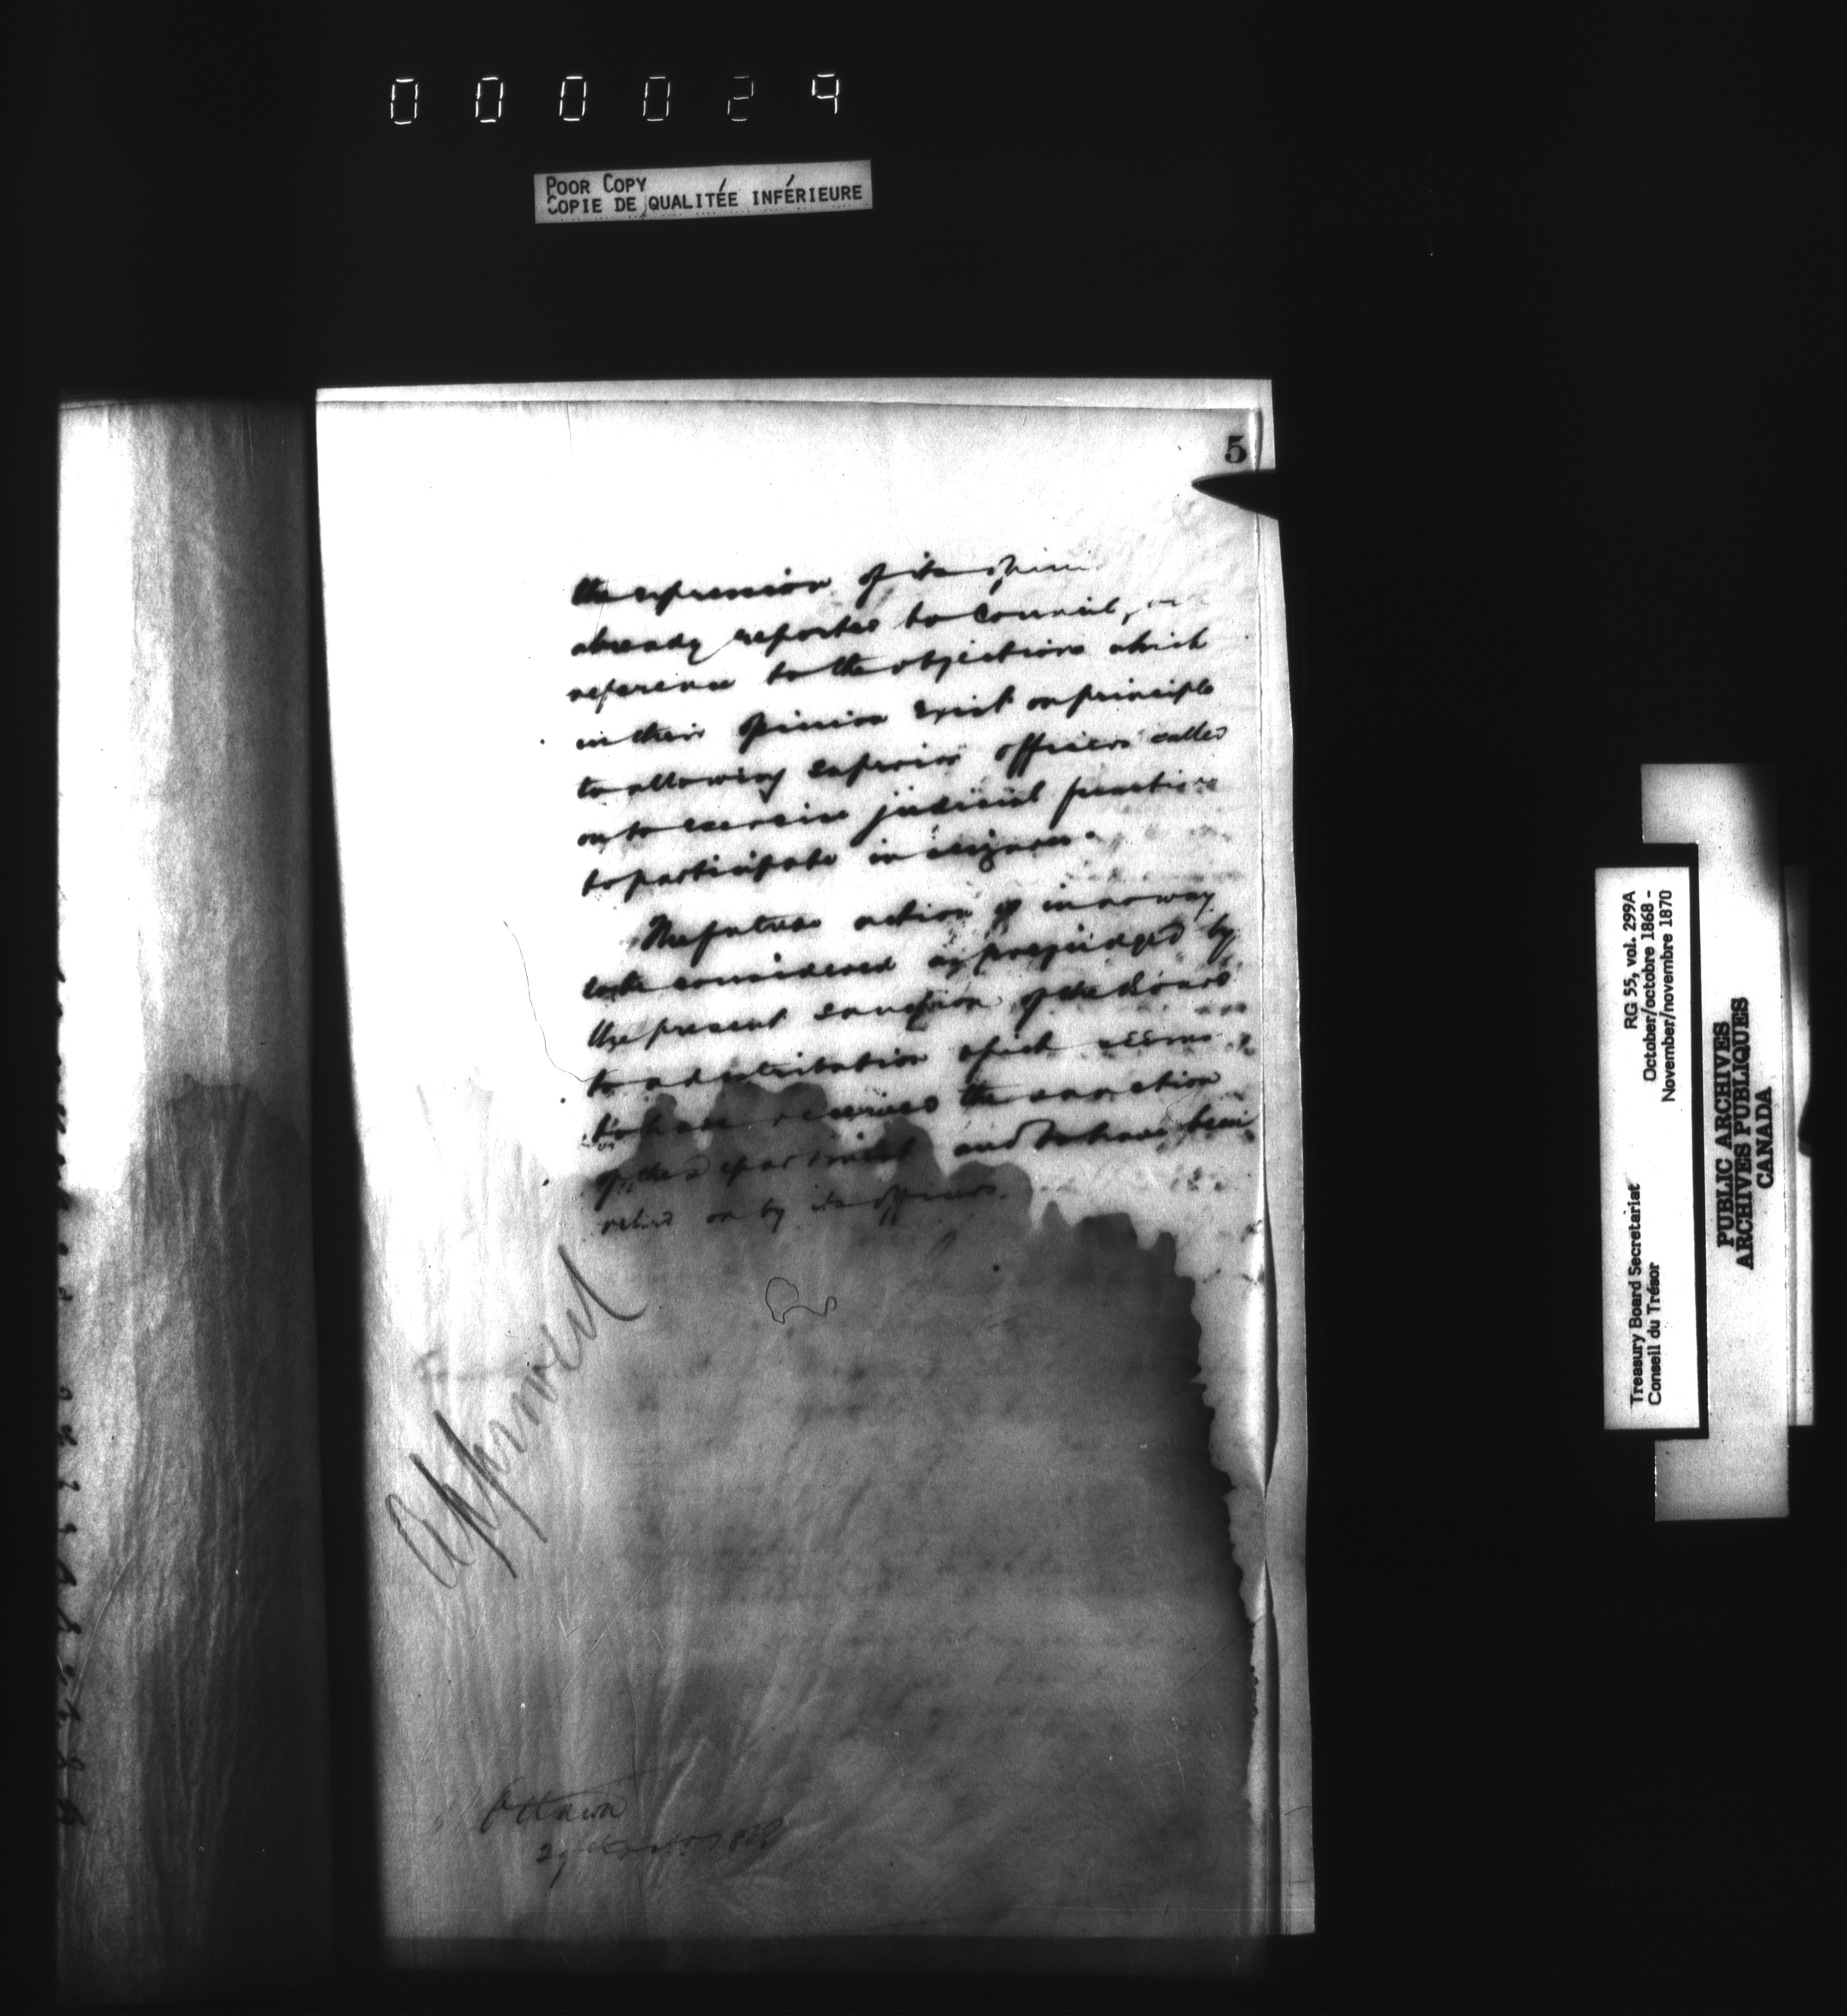 000029
POOR COPY
COPIE DE QUALITÉE INFÉRIEURE
5
the expression of its opinion
already reported to Council,
reference to the objections which
in their opinion exist on principle
to allowing superior officers called
on to exercise judicial functions
to participate in seizures.
The future action is in no way
to be considered as prejudged by
the present sanction of the Board
to a distribution which seems
to have received the sanction
of the Department and to have been
relied on by its officers.
Approved
Ottawa
RG 55, vol. 299A
October/octobre 1868 -
November/novembre 1870
Treasury Board Secretariat
Conseil du Trésor
PUBLIC ARCHIVES
ARCHIVES PUBLIQUES
CANADA